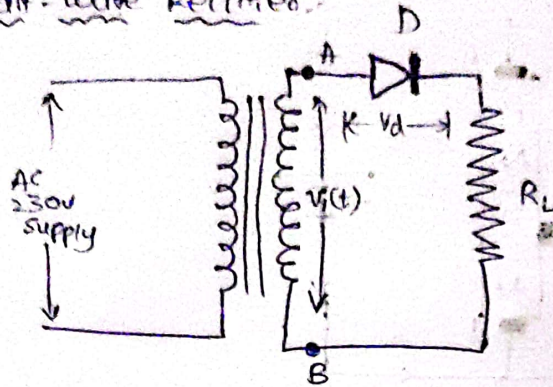 D
A
Vd
AC
230V
Supply
Vi(t)
RL
B